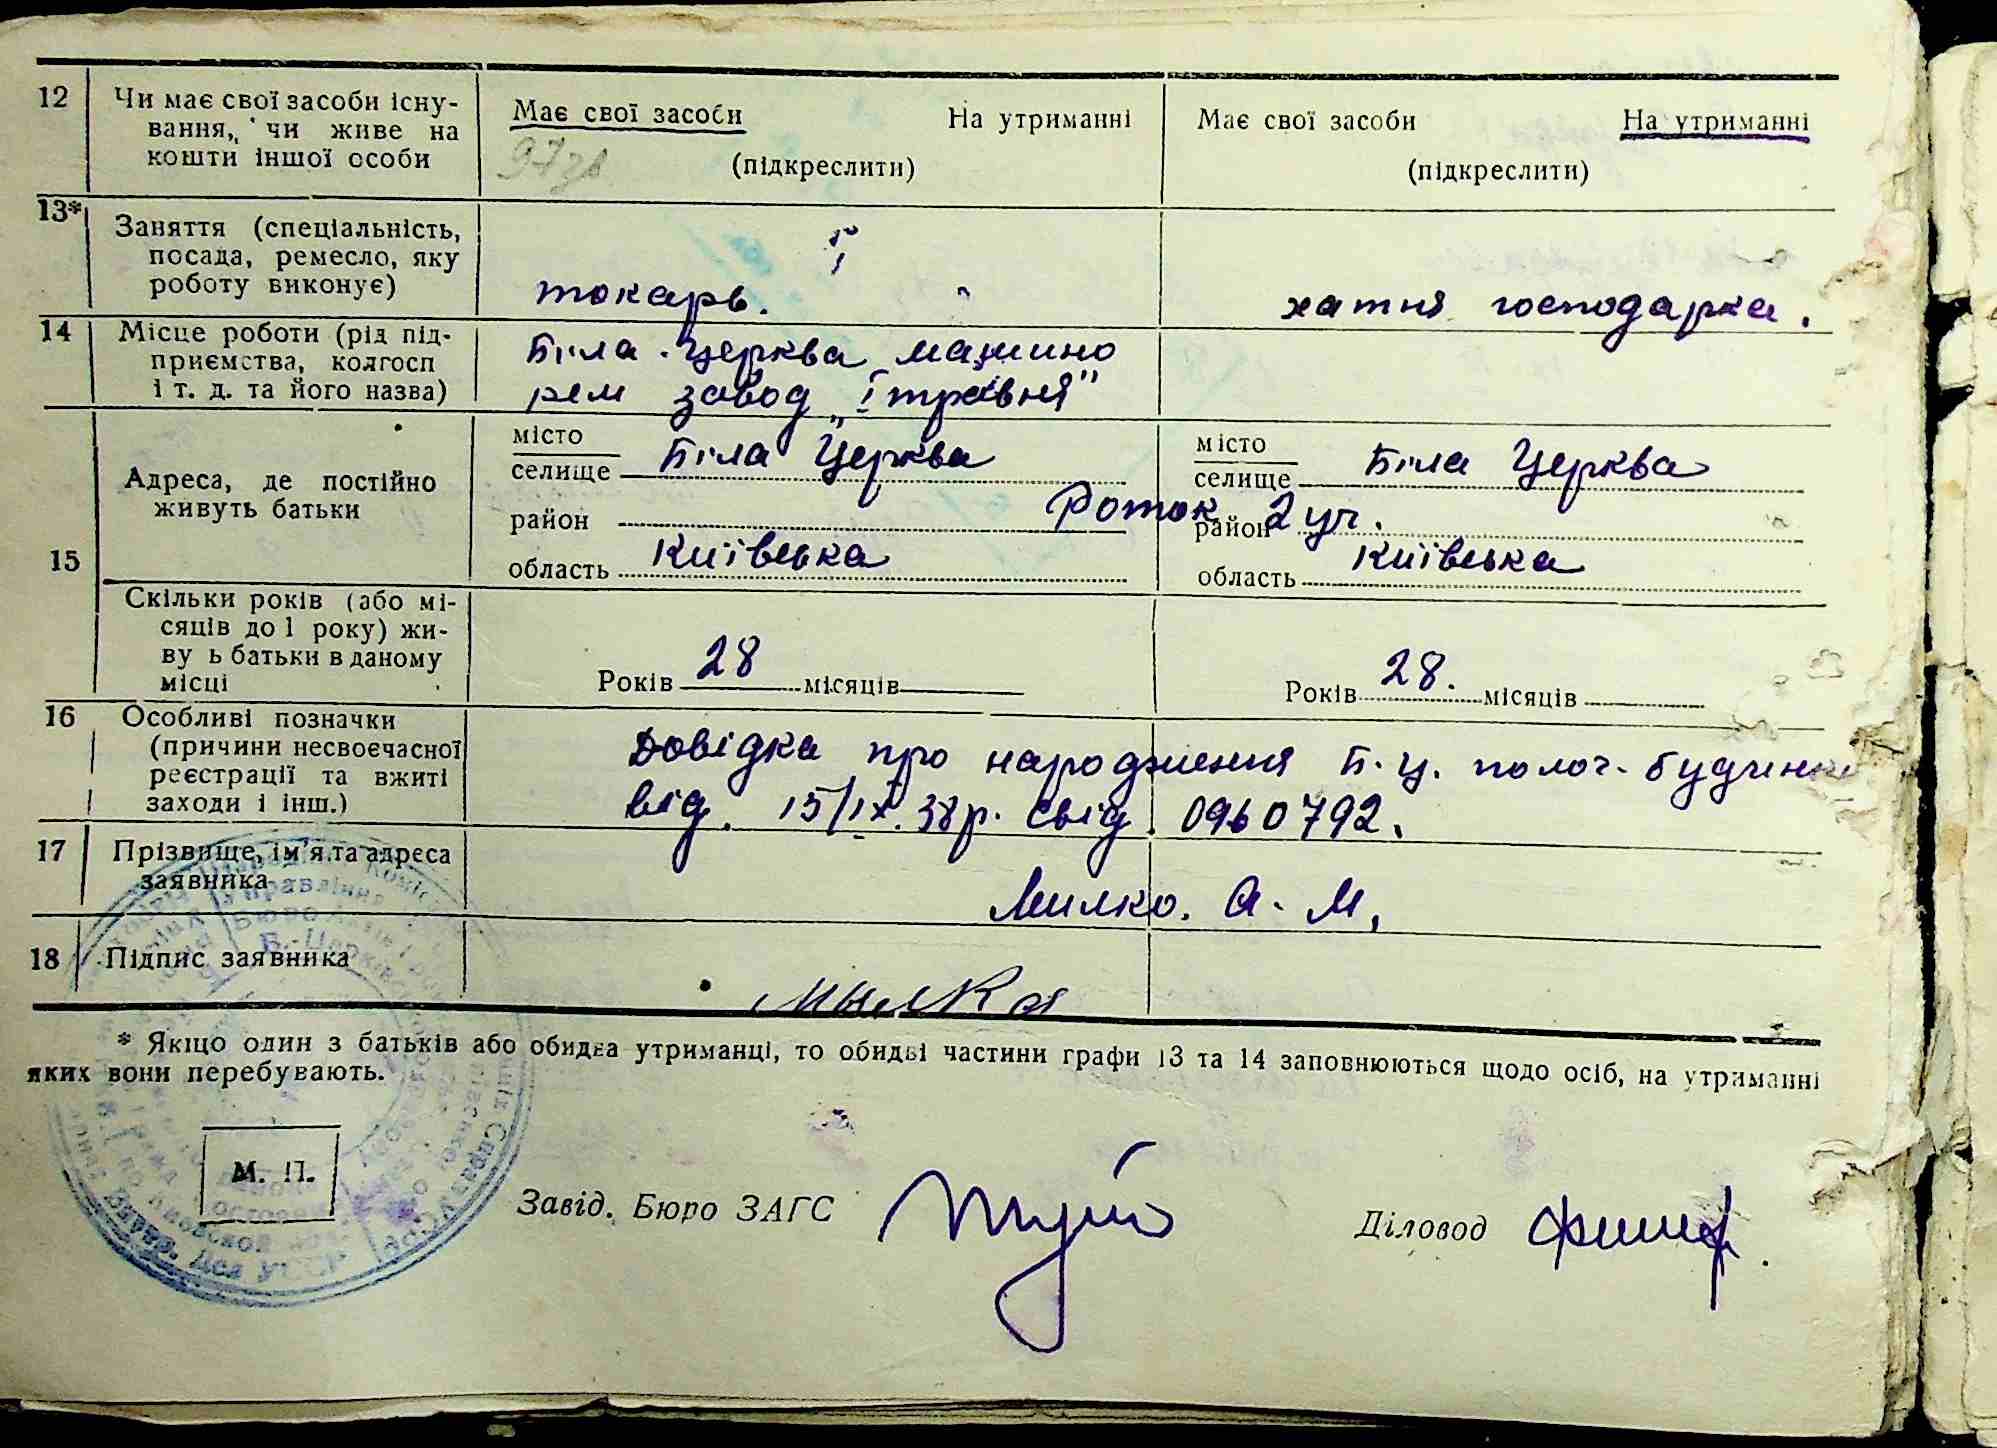 12 Чи має свої засоби існу-
вання, чи живе на
кошти іншої особи
Має свої засоби На утриманні
(підкреслити)
Має свої засоби На утриманні
(підкреслити)
13* Заняття (спеціальність,
посада, ремесло, яку
роботу виконує)
токарь.
хатня господарка.
14 Місце роботи (рід під-
приємства, колгосп
і т. д. та його назва)
Біла-Церква машино
рем завод „І травня"
15 Адреса, де постійно
живуть батьки
місто
селище Біла Церква
район
область Київська
Роток 2 уч.
місто
селище Біла Церква
район
область Київська
Скільки років (або мі-
сяців до 1 року) жи-
ву ь батьки в даному
місці
Років 28 місяців
Років 28. місяців
16 Особливі позначки
(причини несвоєчасної
реєстрації та вжиті
заходи і інш.)
Довідка про народження Б.Ц. полог. будинку
від. 15/ІХ.38р. свід. 0960792.
17 Прізвище, ім'я та адреса
заявника
Милко. А. М.
18 Підпис заявника
Мылко
* Якщо один з батьків або обидва утриманці, то обидві частини графи 13 та 14 заповнюються щодо осіб, на утриманні
яких вони перебувають.
М. П.
Завід. Бюро ЗАГС
Діловод